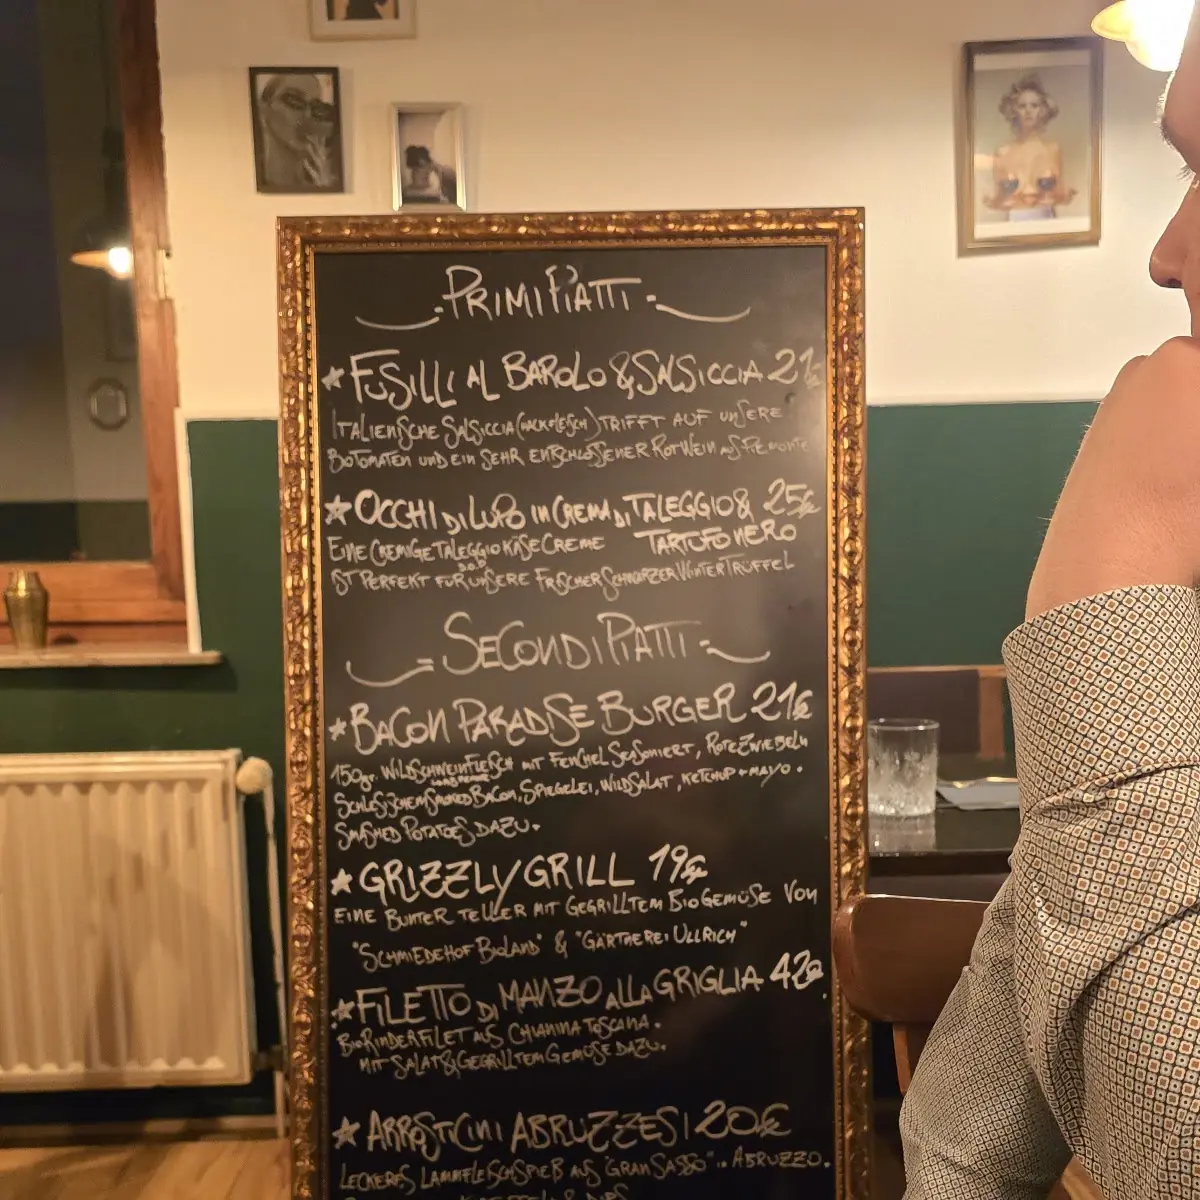 PRIMI PIATTI
★ FUSILLI AL BAROLO & SALSICCIA 21€
ITALIENISCHE SALSICCIA (HACKFLEISCH) TRIFFT AUF UNSERE
BIOTOMATEN UND EIN SEHR ENTSCHLOSSENER ROTWEIN AUS PIEMONTE
★ OCCHI DI LUPO IN CREMA DI TALEGGIO & 25€
TARTUFO NERO
EINE CREMIGE TALEGGIO KÄSE CREME
D.O.P
IST PERFEKT FÜR UNSERE FRISCHER SCHWARZER WINTERTRÜFFEL
SECONDI PIATTI
★ BACON PARADISE BURGER 21€
150gr. WILDSCHWEINFLEISCH MIT FENCHEL SEASONIERT, ROTE ZWIEBELN
SMOKED BACON, SPIEGELEI, WILDSALAT, KETCHUP + MAYO.
SMASHED POTATOES DAZU.
★ GRIZZLY GRILL 19€
EINE BUNTER TELLER MIT GEGRILLTEM BIOGEMÜSE VON
"SCHMIEDEHOF BIOLAND" & "GÄRTNEREI ULLRICH"
★ FILETTO DI MANZO ALLA GRIGLIA 42€
BIORINDERFILET AUS CHIANINA TOSCANA.
MIT SALAT & GEGRILLTEM GEMÜSE DAZU.
★ ARROSTICINI ABRUZZESI 20€
LECKERES LAMMFLEISCHSPIEß AUS "GRAN SASSO".. ABRUZZO.
& DIPS